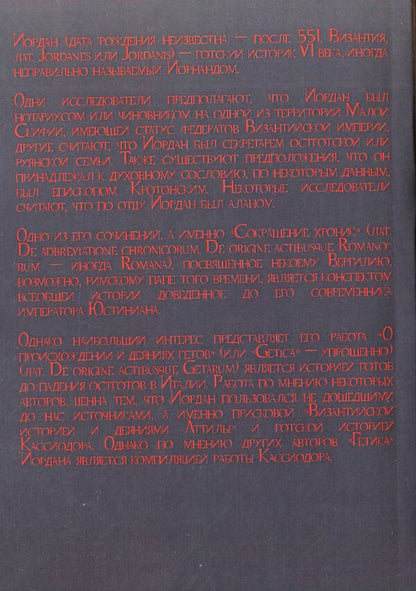 Иордан (дата рождения неизвестна — после 551, Византия,
лат. Jordanes или Jordanis) — готский историк VI века, иногда
неправильно называемый Иорнандом.
Одни исследователи предполагают, что Иордан был
нотариусом или чиновником на одной из территорий Малой
Скифии, имеющей статус федератов Византийской империи,
другие считают, что Иордан был секретарем остготской или
руянской семьи. Также существуют предположения, что он
принадлежал к духовному сословию, по некоторым данным,
был епископом Кротонским. Некоторые исследователи
считают, что по отцу Иордан был аланом.
Одно из его сочинений, а именно «Сокращение хроник» (лат.
De adbreviatione chronicorum, De origine actibusque Romano-
rum — иногда Romana), посвященное некоему Вергилию,
возможно, римскому папе того времени, является конспектом
всеобщей истории доведенное до его современника
императора Юстиниана.
Однако наибольший интерес представляет его работа «О
происхождении и деяниях гетов» (или «Getica» — упрощенно)
(лат. De origine actibusque Getarum) является историей готов
до падения остготов в Италии. Работа по мнению некоторых
авторов, ценна тем, что Иордан пользовался не дошедшими
до нас источниками, а именно присковой «Византийской
историей и деяниями Аттилы» и готской историей
Кассиодора. Однако по мнению других авторов «Гетика»
Иордана является компиляцией работы Кассиодора.